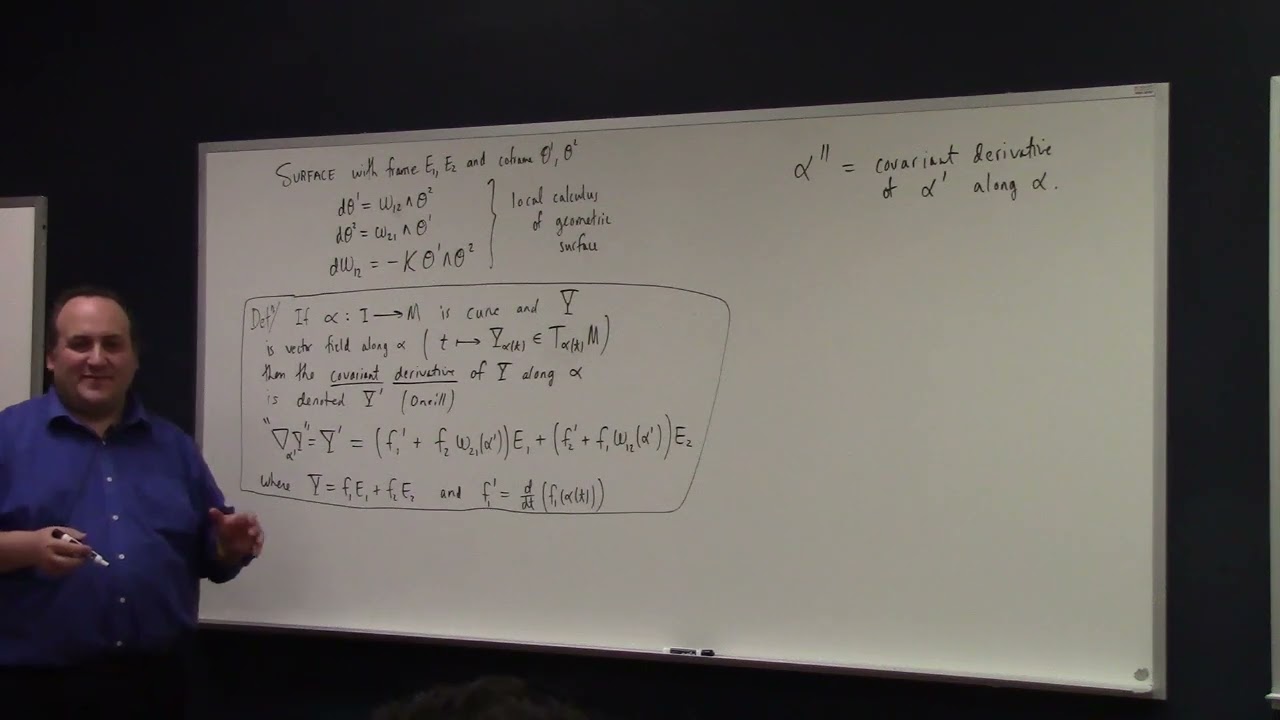 SURFACE with frame E₁, E₂ and coframe θ¹, θ²
dθ¹ = ω₁₂ ∧ θ²
dθ² = ω₂₁ ∧ θ¹
dω₁₂ = -K θ¹ ∧ θ²
local calculus
of geometric
surface
Defⁿ/ If α : I → M is curve and Y
is vector field along α ( t ↦ Y_α(t) ∈ T_α(t) M )
then the covariant derivative of Y along α
is denoted Y' (Oneill)
"∇_α' Y" = Y' = (f₁' + f₂ ω₂₁(α'))E₁ + (f₂' + f₁ ω₁₂(α'))E₂
where Y = f₁E₁ + f₂E₂ and f₁' = d/dt (f₁(α(t)))
α'' = covariant derivative
of α' along α.